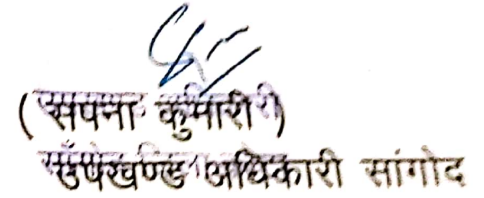 (सपना कुमारी)
उपखण्ड अधिकारी सांगोद